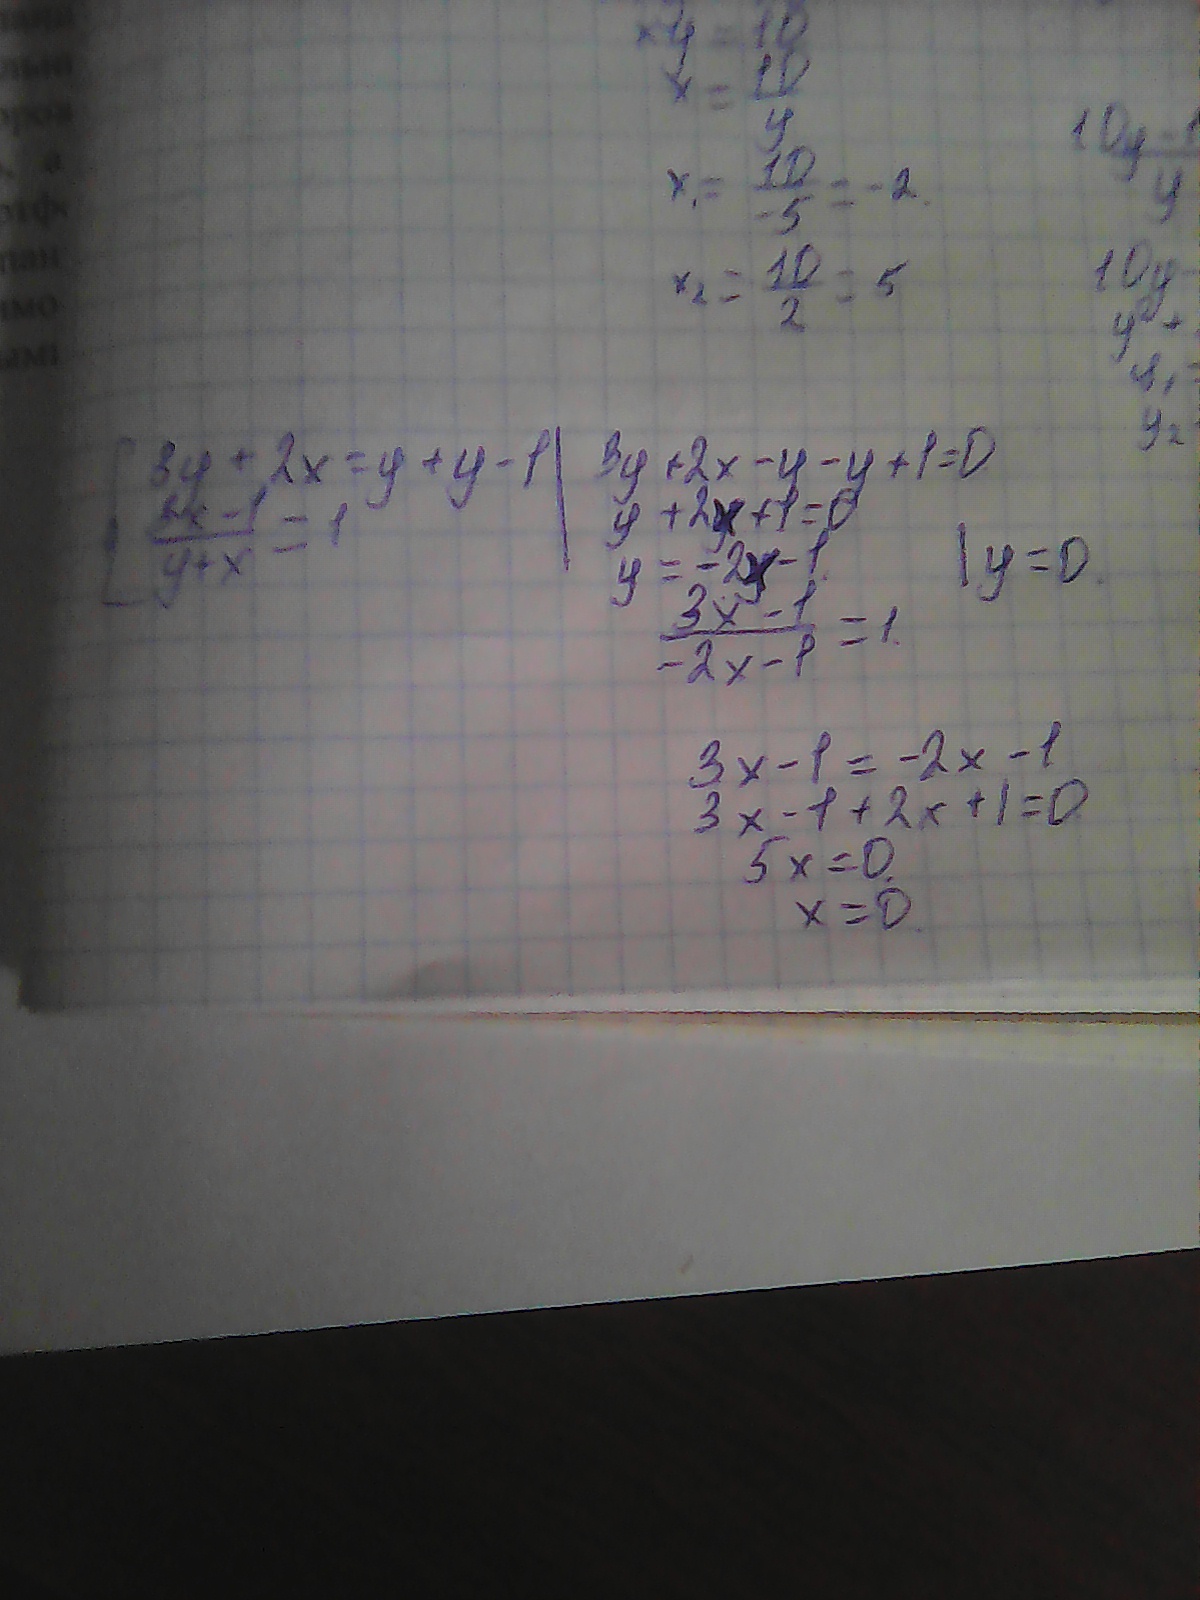 xy = 10
x = 10/y
x₁ = 10/-5 = -2.
x₂ = 10/2 = 5
10y - 1
y
10y -
y² +
y₁ =
y₂
3y + 2x = y + y - 1
3x - 1/y + x = 1
3y + 2x - y - y + 1 = 0
y + 2x + 1 = 0
y = -2x - 1.
y = 0.
3x - 1/-2x - 1 = 1.
3x - 1 = -2x - 1
3x - 1 + 2x + 1 = 0
5x = 0.
x = 0.